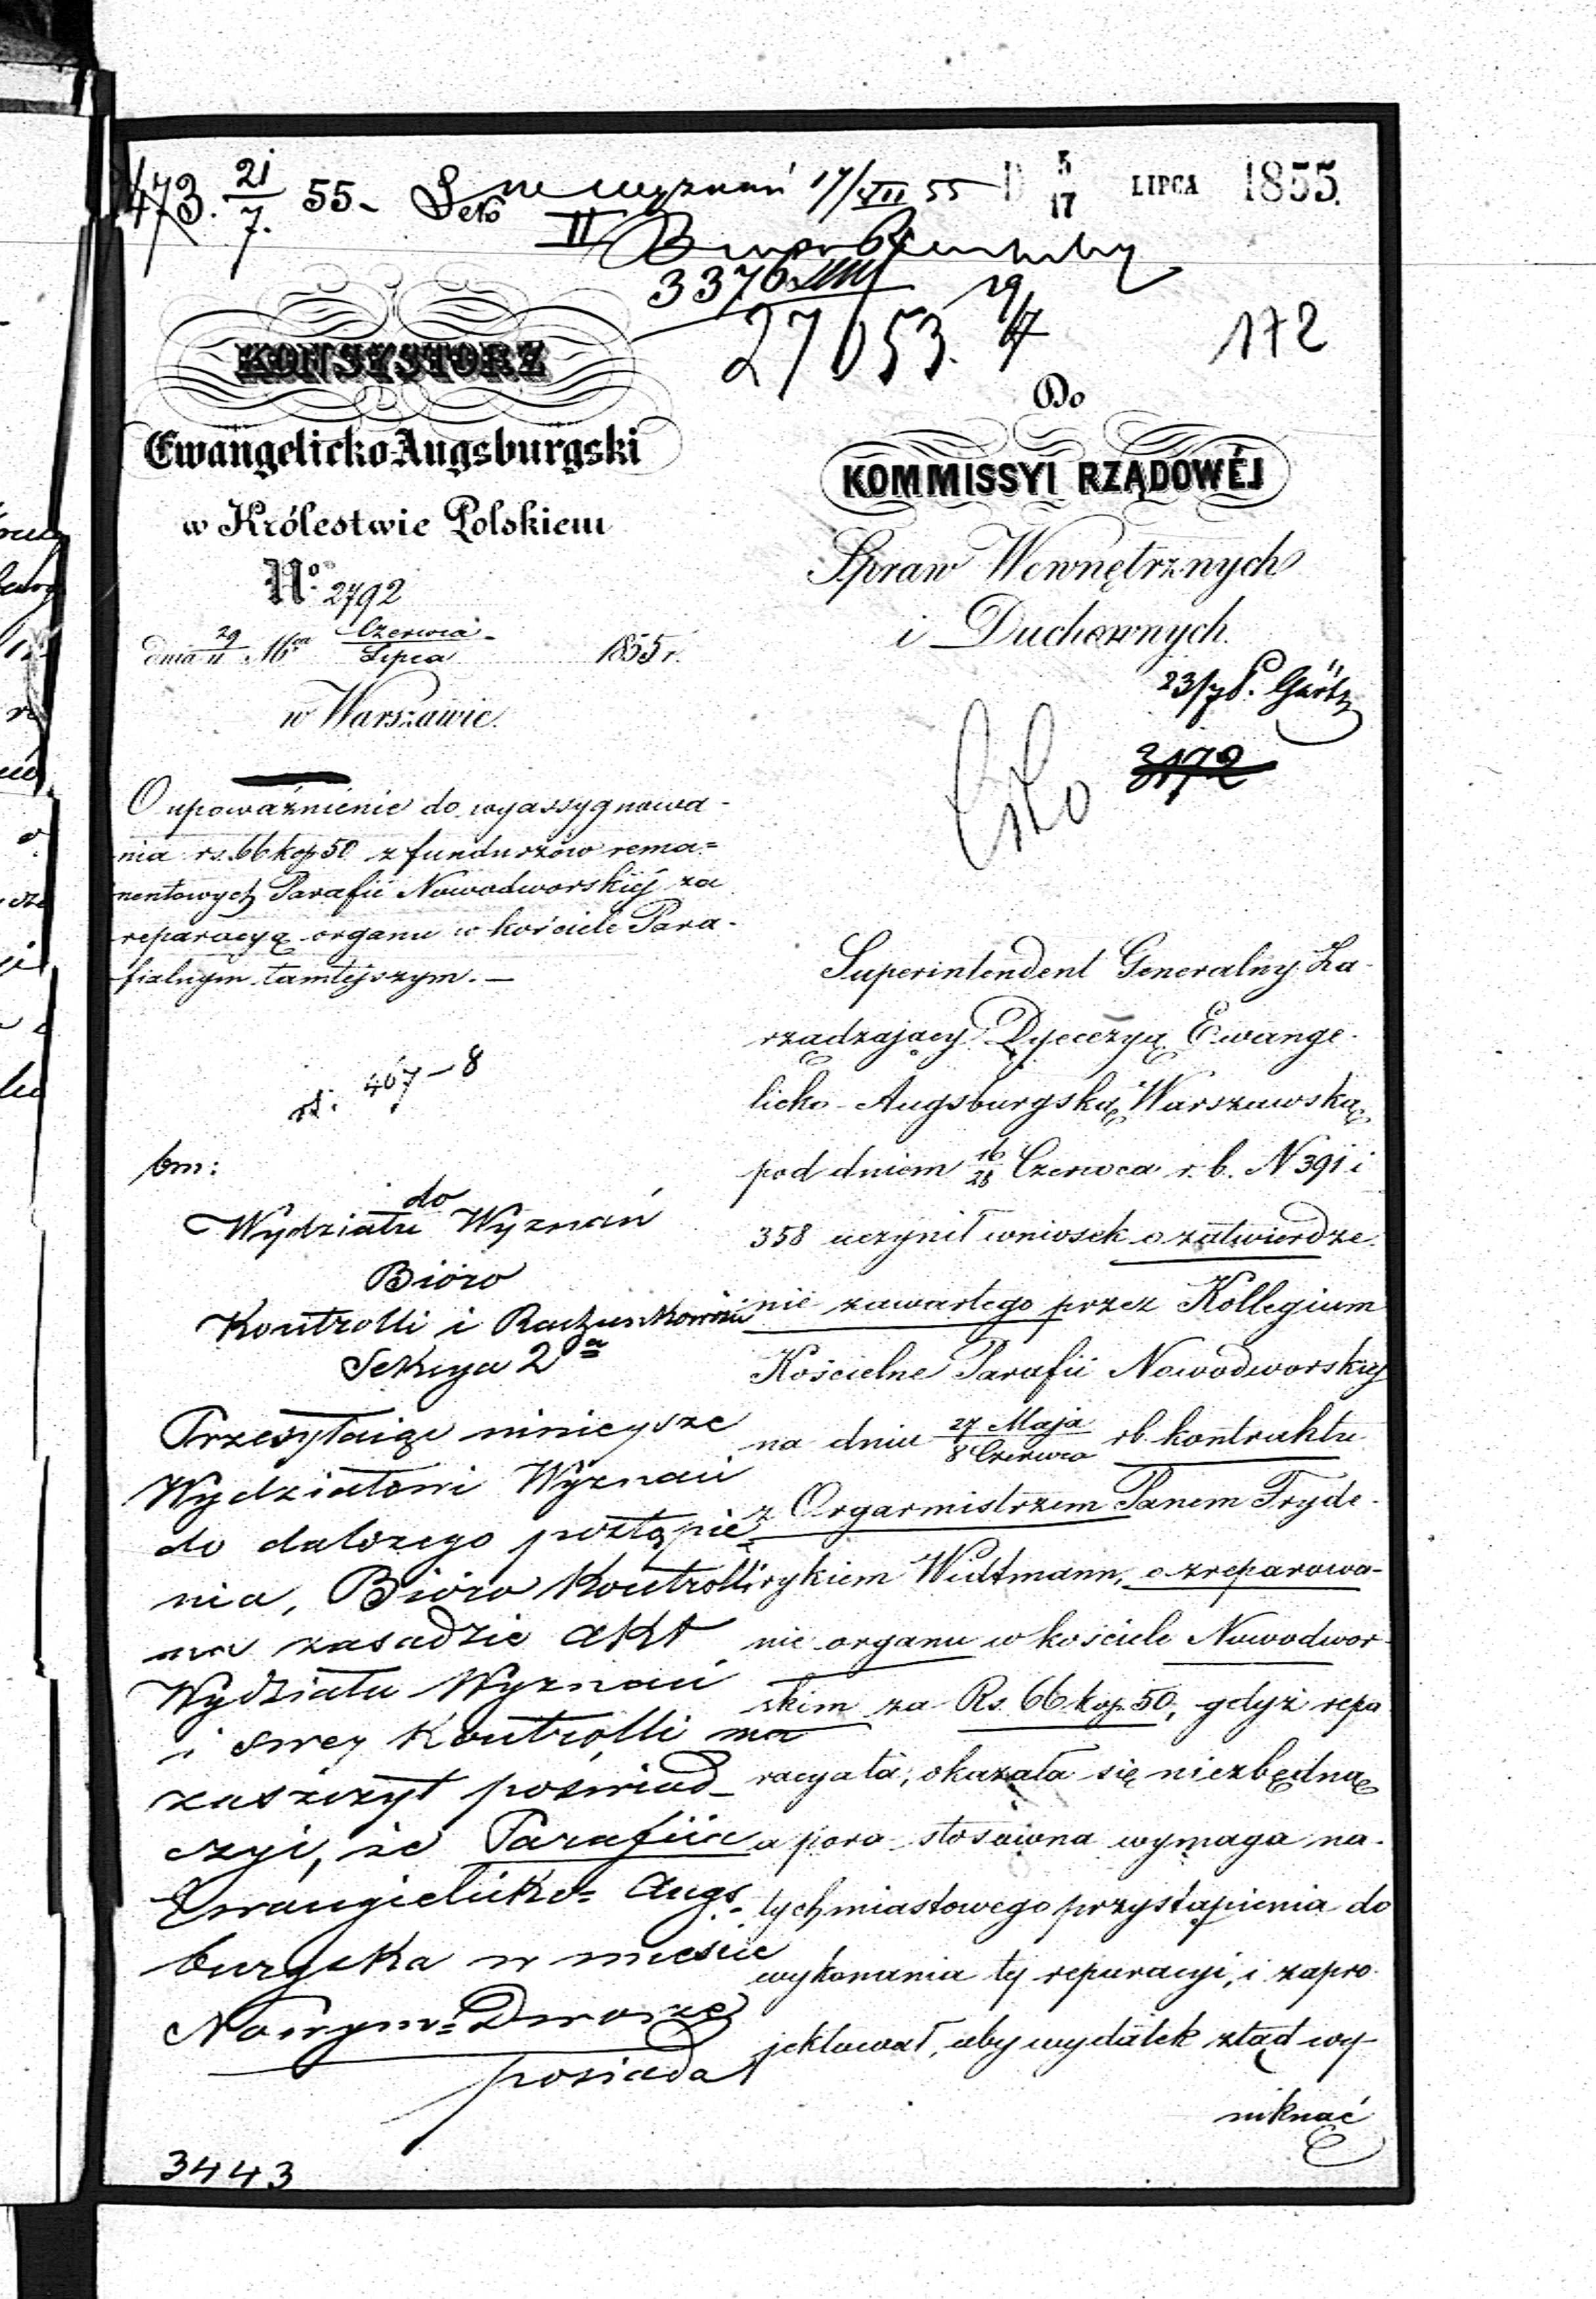 473. 21/7. 55.
17/VII 55
5/17 LIPCA 1855.
II
3376
27653. 19/7
172
KONSYSTORZ
Ewangelicko-Augsburgski
w Królestwie Polskiem
No. 2792
dnia 29/11 Mca Czerwca/Lipca 1855 r.
w Warszawie.
O upoważnienie do wyassygnowa-
nia rs. 66 kop 50 z funduszów rema=
nentowych Parafii Nowodworskiéj za
reparacyą organu w kościele Para-
fialnym tamtejszym. —
467-8
bm:
do
Wydziału Wyznań
Bióro
Kontrolli i Rachunkowości
Sekcya 2a
Przesyłaiąc ninieysze
Wydziałowi Wyznań
do dalszego postąpie=
nia, Bióro Kontrolli
na zasadzie akt
Wydziału Wyznań
i swey Kontrolli ma
zaszczyt poświad-
czyć, że Parafiia
Ewangielicko= Augs=
burgska w mieście
Nowym=Dworze
posiada
3443
Do
KOMMISSYI RZĄDOWÉJ
Spraw Wewnętrznych
i Duchownych.
23/7
Cito
3172
Superintendent Generalny Za-
rządzający Dyecezyą Ewange-
licko-Augsburgską Warszawską
pod dniem 16/28 Czerwca r. b. N 391 i
358 uczynił wniosek o zatwierdze-
nie zawartego przez Kollegium
Kościelne Parafii Nowodworskiéj
na dniu 27 Maja/8 Czerwca rb. kontraktu
z Orgarmistrzem Panem Fryde-
rykiem Widtmann, o zreparowa-
nie organu w kościele Nowodwor-
skim za Rs. 66 kop. 50, gdyż repa
racya ta, okazała się niezbędną
a pora stosowna wymaga na-
tychmiastowego przystąpienia do
wykonania téj reparacyi, i zapro-
jektował, aby wydatek ztąd wy-
niknąć